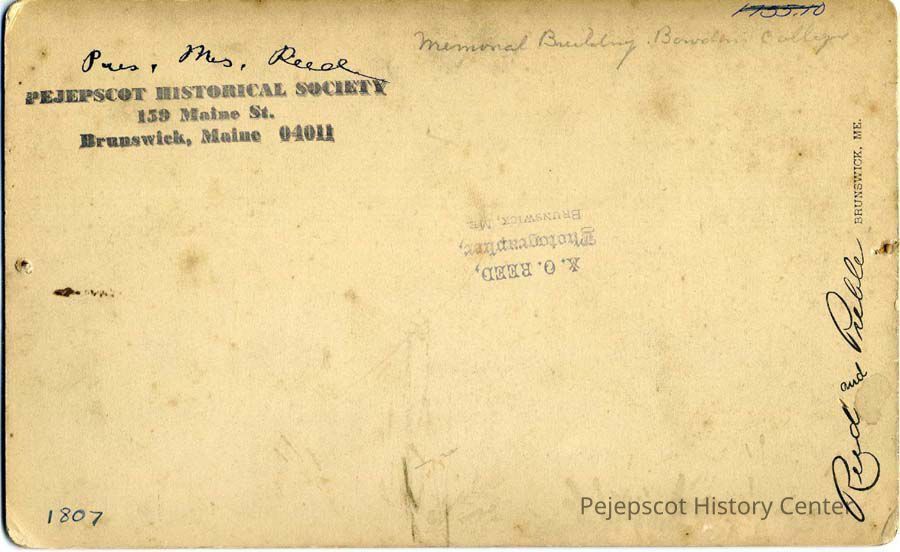 1755.10
Memorial Building. Bowdoin College
Pres. Mrs. Reed
PEJEPSCOT HISTORICAL SOCIETY
159 Maine St.
Brunswick, Maine 04011
X. O. REED,
Photographer,
BRUNSWICK, ME.
Reed and Preble
BRUNSWICK, ME.
1807
Pejepscot History Center